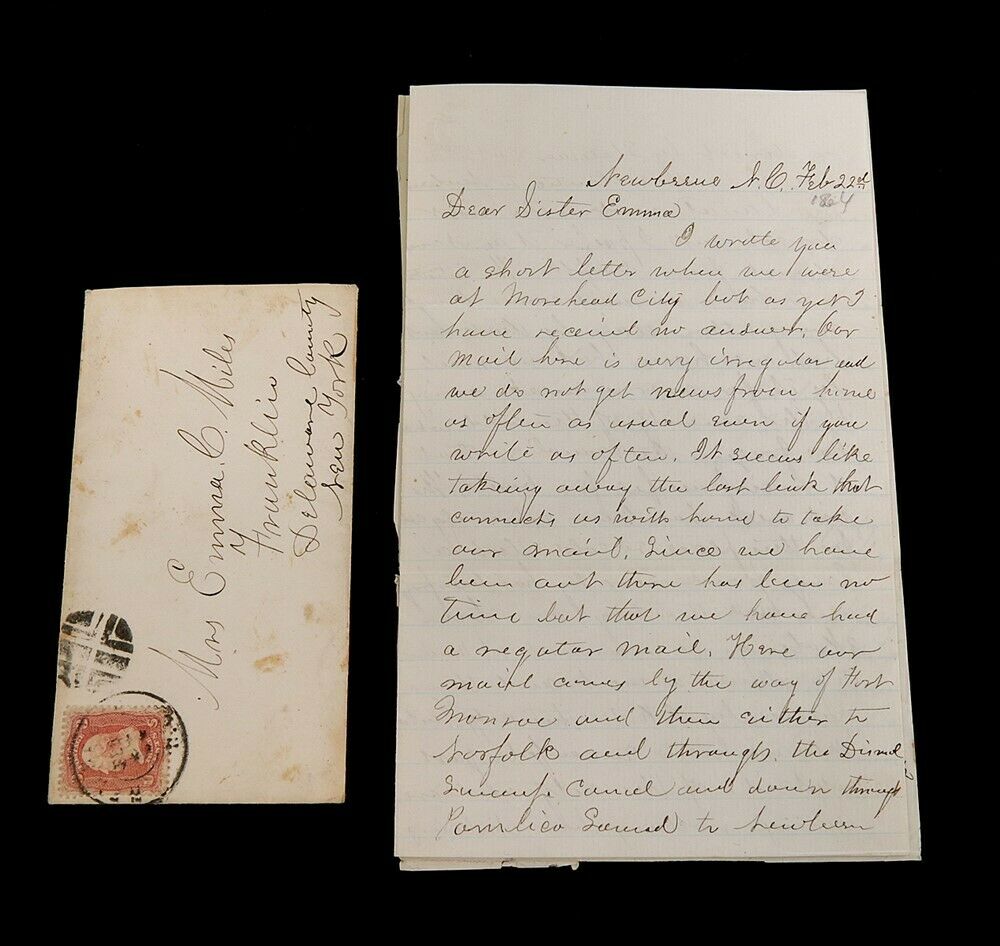 Mrs Emma C. Miles
Franklin
Delaware County
New York
Newberne N.C. Feb 22nd
1864
Dear Sister Emma
I wrote you
a short letter when we were
at Morehead City but as yet I
have receivd no answer. Our
mail here is very irregular and
we do not get news from home
as often as usual even if you
write as often. It seems like
takeing away the last link that
connects us with home to take
our mail. Since we have
been out there has been no
time but that we have had
a regular mail. Here our
mail comes by the way of Fort
Monroe and then either to
Norfolk and through the Dismal
Swamp Canal and down through
Pamlico Sound to Newbern